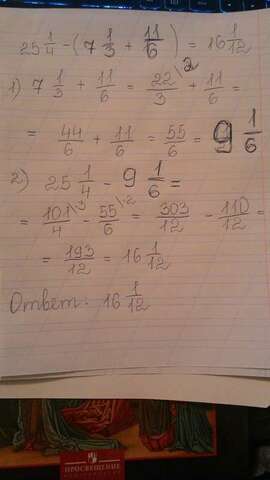 25 1/4 - (7 1/3 + 11/6) = 16 1/12
1) 7 1/3 + 11/6 = 22/3 \2 + 11/6 =
= 44/6 + 11/6 = 55/6 = 9 1/6
2) 25 1/4 - 9 1/6 =
= 101/4 \3 - 55/6 \2 = 303/12 - 110/12 =
= 193/12 = 16 1/12
Ответ: 16 1/12
ПРОСВЕЩЕНИЕ